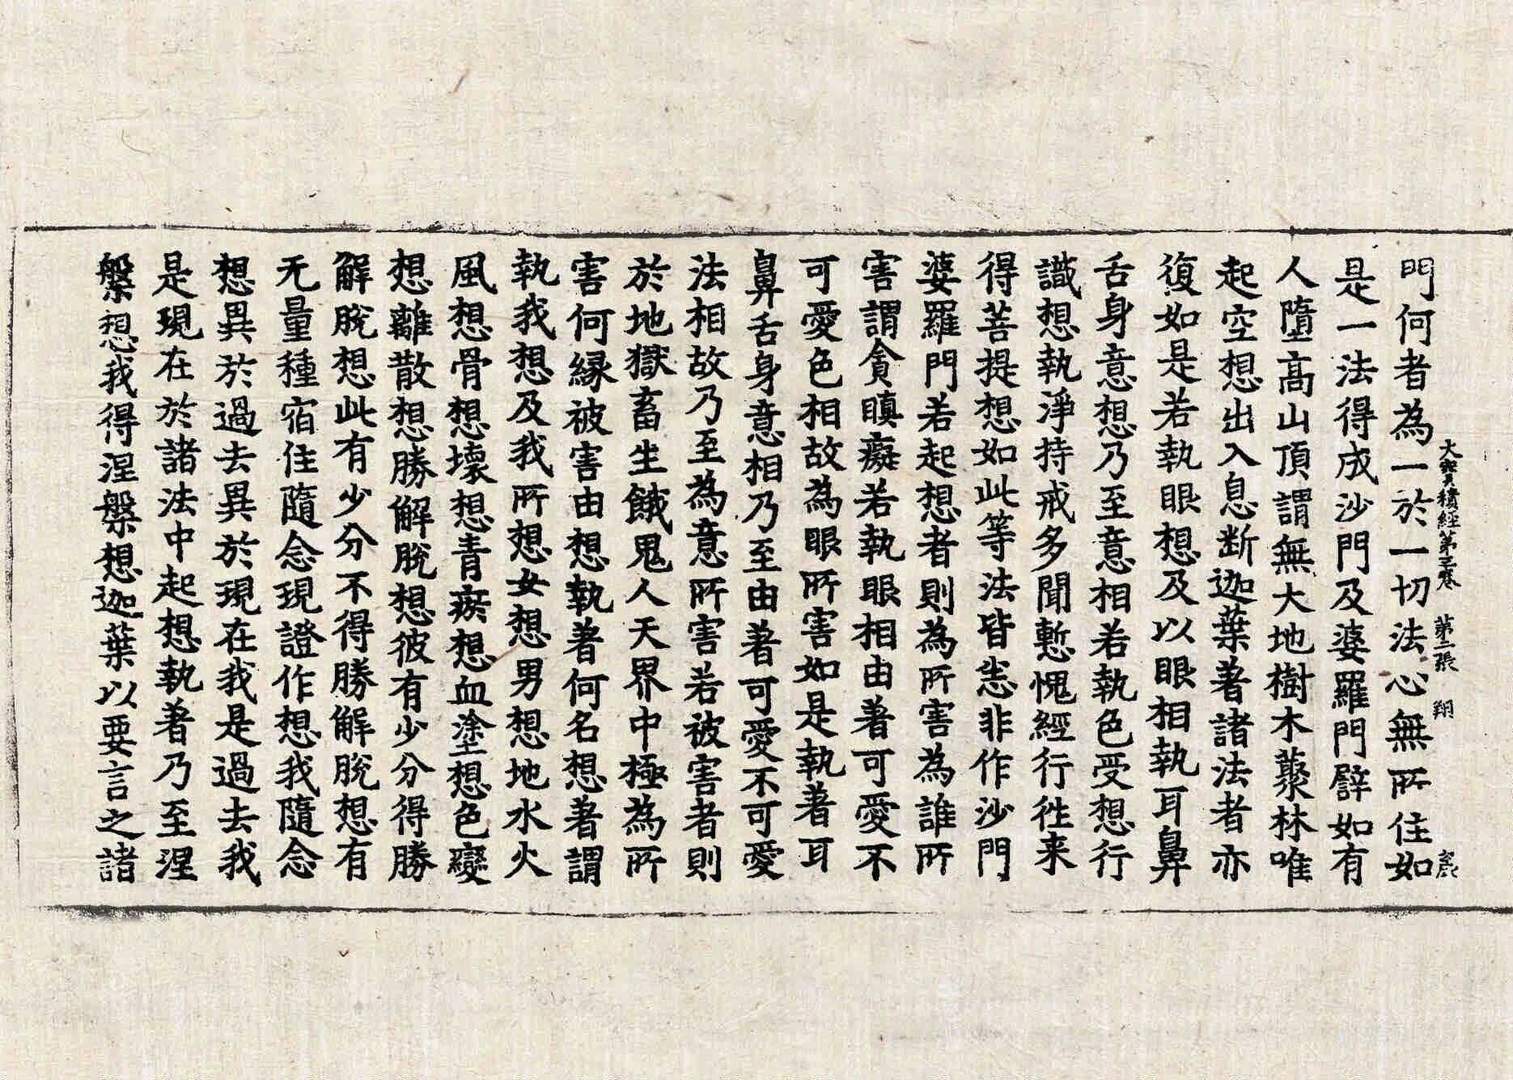 大寶積經第三卷 第二張 翔
門何者為一於一切法心無所住如
是一法得成沙門及婆羅門譬如有
人墮高山頂謂無大地樹木藂林唯
起空想出入息断迦葉著諸法者亦
復如是若執眼想及以眼相執耳鼻
舌身意想乃至意相若執色受想行
識想執淨持戒多聞慙愧經行徃来
得菩提想如此等法皆悉非作沙門
婆羅門若起想者則為所害為誰所
害謂貪瞋癡若執眼相由著可愛不
可愛色相故為眼所害如是執著耳
鼻舌身意相乃至由著可愛不可愛
法相故乃至為意所害若被害者則
於地獄畜生餓鬼人天界中極為所
害何縁被害由想執著何名想著謂
執我想及我所想女想男想地水火
風想骨想壞想青瘀想血塗想色變
想離散想勝解脫想彼有少分得勝
解脫想此有少分不得勝解脫想有
无量種宿住隨念現證作想我隨念
想異於過去異於現在我是過去我
是現在於諸法中起想執著乃至涅
槃想我得涅槃想迦葉以要言之諸